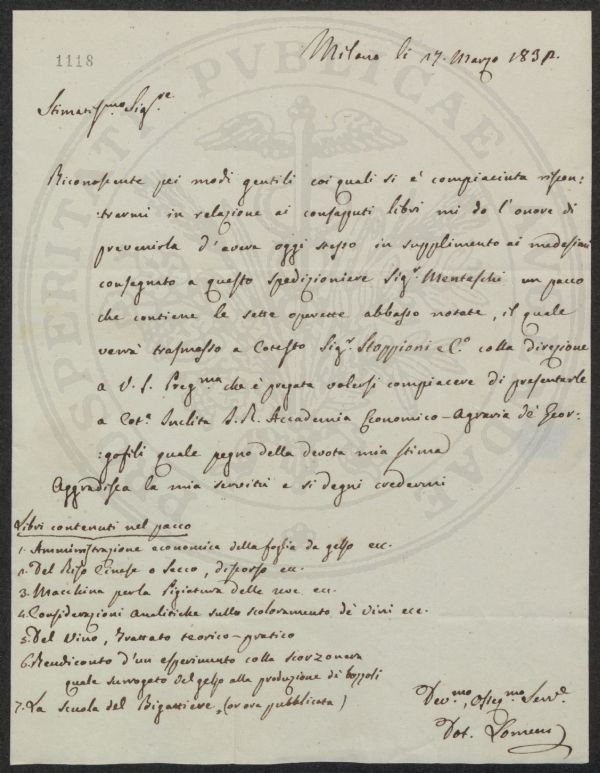 1118
Milano li 17. Marzo 1832.
Stimatissmo. Sigre.
Riconoscente pei modi gentili coi quali si è compiaciuta riscon:
:trarmi in relazione ai consaputi libri mi do l'onore di
prevenirla d'avere oggi stesso in supplimento ai medesimi
consegnato a questo spedizioniere Sigr. Menteschi un pacco
che contiene le sette operette abbasso notate, il quale
verrà trasmesso a Cotesto Sigr. Stoppioni e Co. colla direzione
a V. S. Pregma. che è pregata volersi compiacere di presentarle
a Cota. Inclita I. R. Accademia Economico-Agraria de' Geor:
:gofili quale pegno della devota mia stima
Aggradisca la mia servitù e si degni credermi
Libri contenuti nel pacco
1. Amministrazione economica della foglia da gelso ecc.
2. Del Riso Cinese o Secco, discorso ecc.
3. Macchina per la Pigiatura delle uve. ecc.
4. Considerazioni Analitiche sullo scoloramento de' Vini ecc.
5. Del Vino, Trattato teorico-pratico
6. Rendiconto d'un esperimento colla Scorzonera
quale surrogato del gelso alla produzione di bozzoli
7. La Scuola del Bigattiere, (or ora pubblicata)
Devmo, Osseqmo Serve.
Dot. Lomeni
PROSPERITATI PVBLICAE